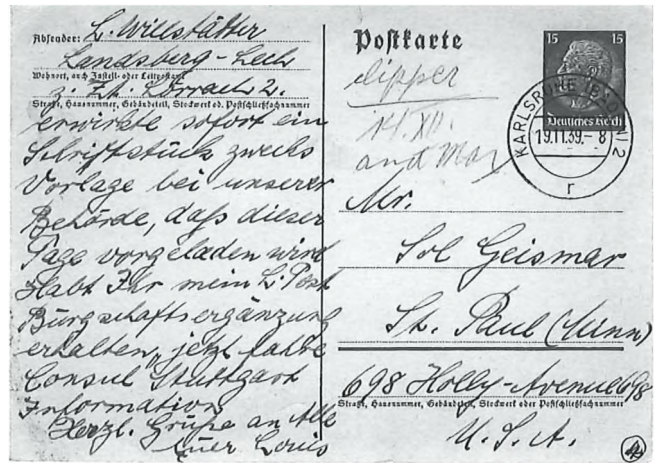 Absender: L. Willstätter
Landsberg-Lech
Wohnort, auch Zustell- oder Leitpostamt
z. Zt. Lörrach 2.
Straße, Hausnummer, Gebäudeteil, Stockwerk od. Postschließfachnummer
erwirkte sofort ein
Schriftstück zwecks
Vorlage bei unserer
Behörde, daß dieser
Tage vorgeladen wird
Habt Ihr mein L. Post
Bürgschaftsergänzung
erhalten, jetzt
Consul Stuttgart
Information
Herzl. Grüße an Alle
Euer Louis
Postkarte
clipper
14. XII.
and Max
15 15
Deutsches Reich
KARLSRUHE (BADEN) 2
19.11.39.-8
r
Mr.
Sol Geismar
St. Paul (Minn)
698 Holly-Avenue 698
Straße, Hausnummer, Gebäudeteil, Stockwerk oder Postschließfachnummer
U.S.A.